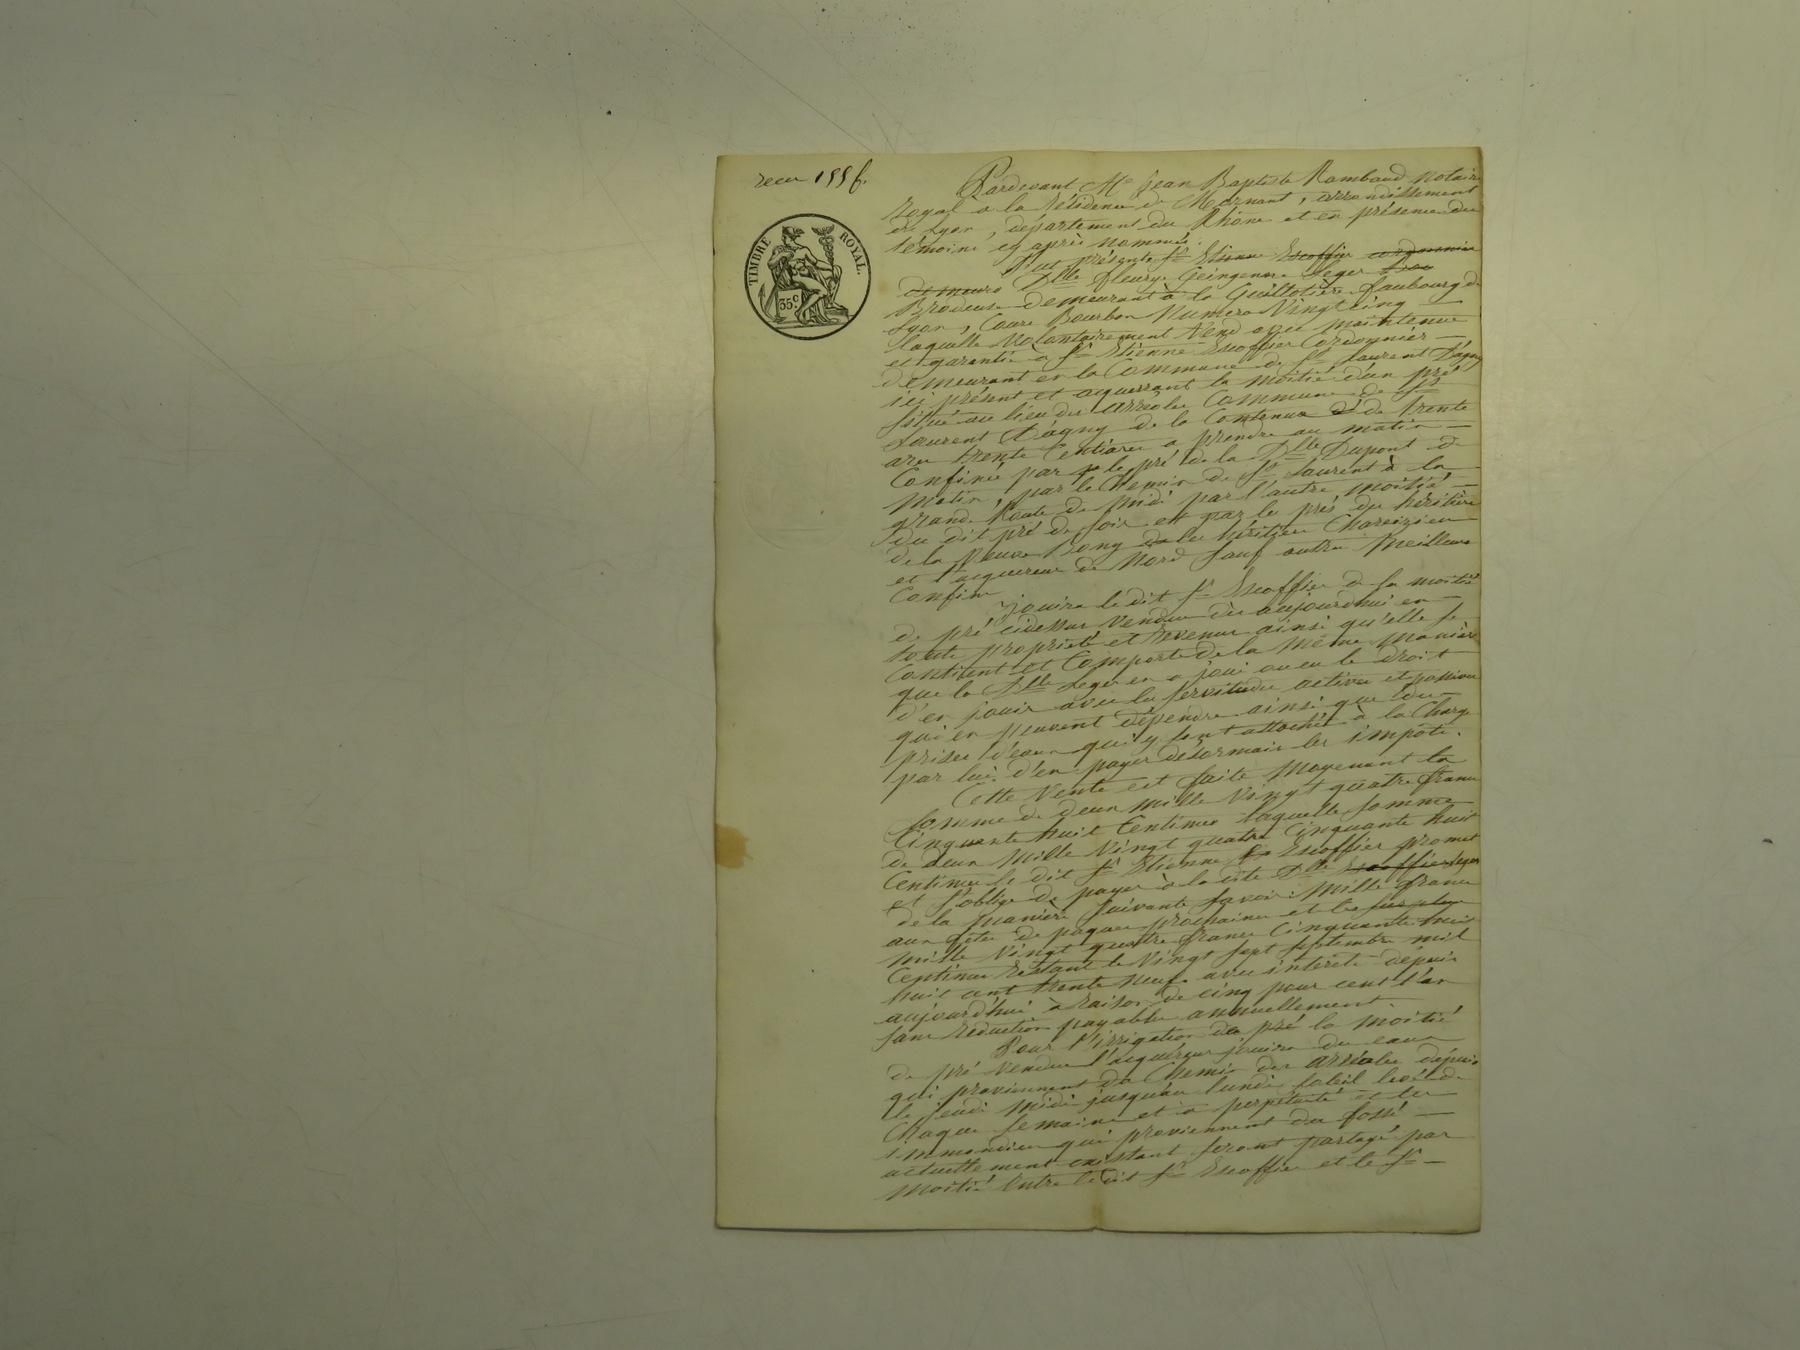 recu 155 f.
TIMBRE ROYAL.
35 c
Pardevant Me Jean Baptiste Rambaud notaire
royal à la résidence de Mornant, arrondissement
de Lyon, département du Rhône et en présence des
témoins cy après nommés.
fut présente sr Etienne Escoffier cordonnier
demeure Dlle fleurye Geingenne Leger
Brodeuse demeurant à la Guillotière faubourg de
Lyon, Cours Bourbon Numero Vingt cinq —
laquelle Volontairement Vend avec maintenue
et garantie à sr Etienne Escoffier Cordonnier —
demeurant en la Commune de St Laurent D'agny
ici présent et aquerrant la moitié d'un pré
situé au lieu des arriolés Commune de St
Laurent D'agny de la Contenue de trente
ares trente Centiares a prendre au matin —
Confinée par le pré de la Dlle Dupont de
Matin, par le Chemin de St Laurent à la
grande Route de Midi par l'autre moitié —
du dit pré de soir et par le prés des héritiers
de la Veuve Bony de les héritiers Chareizieu
et l'acquereur de Nord sauf autres Meilleurs
Confins
Jouira le dit sr Escoffier de la moitié
de pré cidessus Vendue dès aujourdhui en —
toute propriété et Revenus ainsi qu'elle se
Contient et Comporte de la même Manière
que la Dlle Leger en a joui ou eu le droit
d'en jouir avec les servitudes actives et passives
qui en peuvent dépendre ainsi que des
prises d'eaux qui y sont attachés à la Charge
par lui d'en payer désormais les impots.
Cette Vente est faite Moyenant la
somme de deux mille Vingt quatre francs
Cinquante huit Centimes laquelle somme
de deux Mille Vingt quatre Cinquante huit
Centimes le dit sr Etienne Escoffier promet
et s'oblige de payer à la dite Dlle Escoffier Leger
de la manière suivante savoir Mille francs
aux fetes de paques prochaines et les surplus
mille Vingt quatre francs Cinquante huit
Centimes Restant le Vingt sept septembre mil
huit cent trente neuf avec intérêts depuis
aujourd'hui à raison de cinq pour cent l'an
sans reduction payables annuellement.
Pour l'irrigation de pré la moitié
de pré Vendue l'acquéreur jouira des eaux
qui proviennent du Chemin des arriolés depuis
le jeudi Midi jusqu'au lundi soleil levé de
Chaque semaine et à perpétuité et les
immondices qui proviennent du fossé —
actuellement existant seront partagés par
Moitié Entre le dit sr Escoffier et le sr —